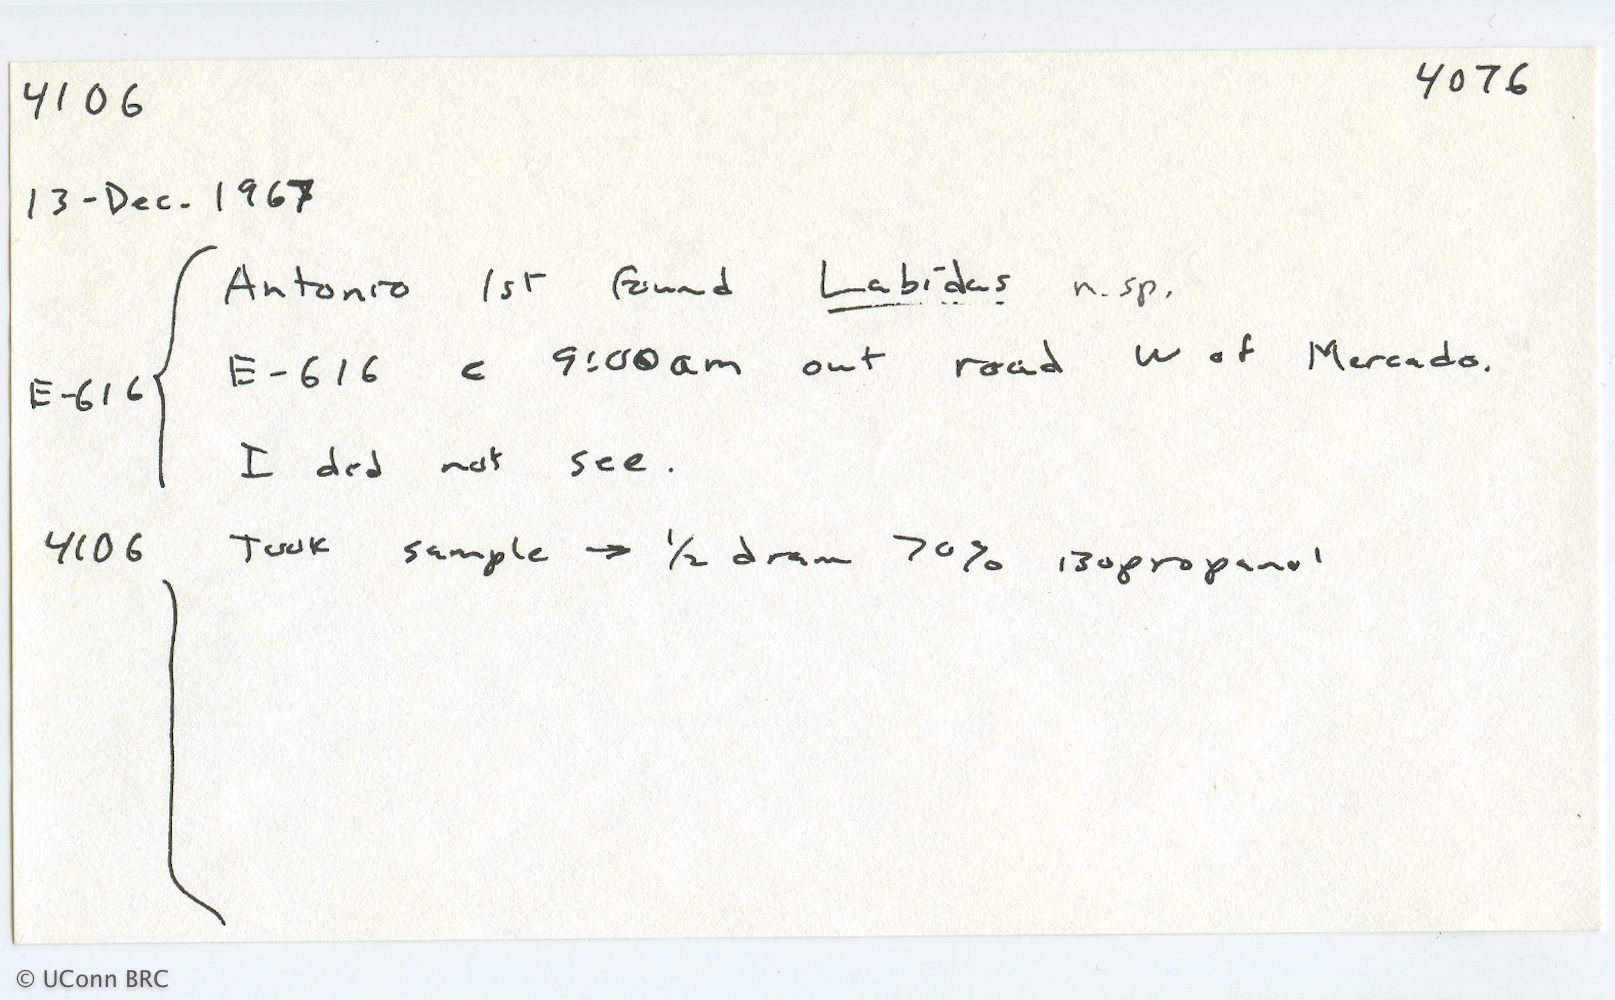 4106 4076
13-Dec. 1967
Antonio 1st found Labidus n.sp.
E-616 c 9:00am out road W of Mercado.
E-616
I did not see.
4106 Took sample → 1/2 dram 70% isopropanol
© UConn BRC